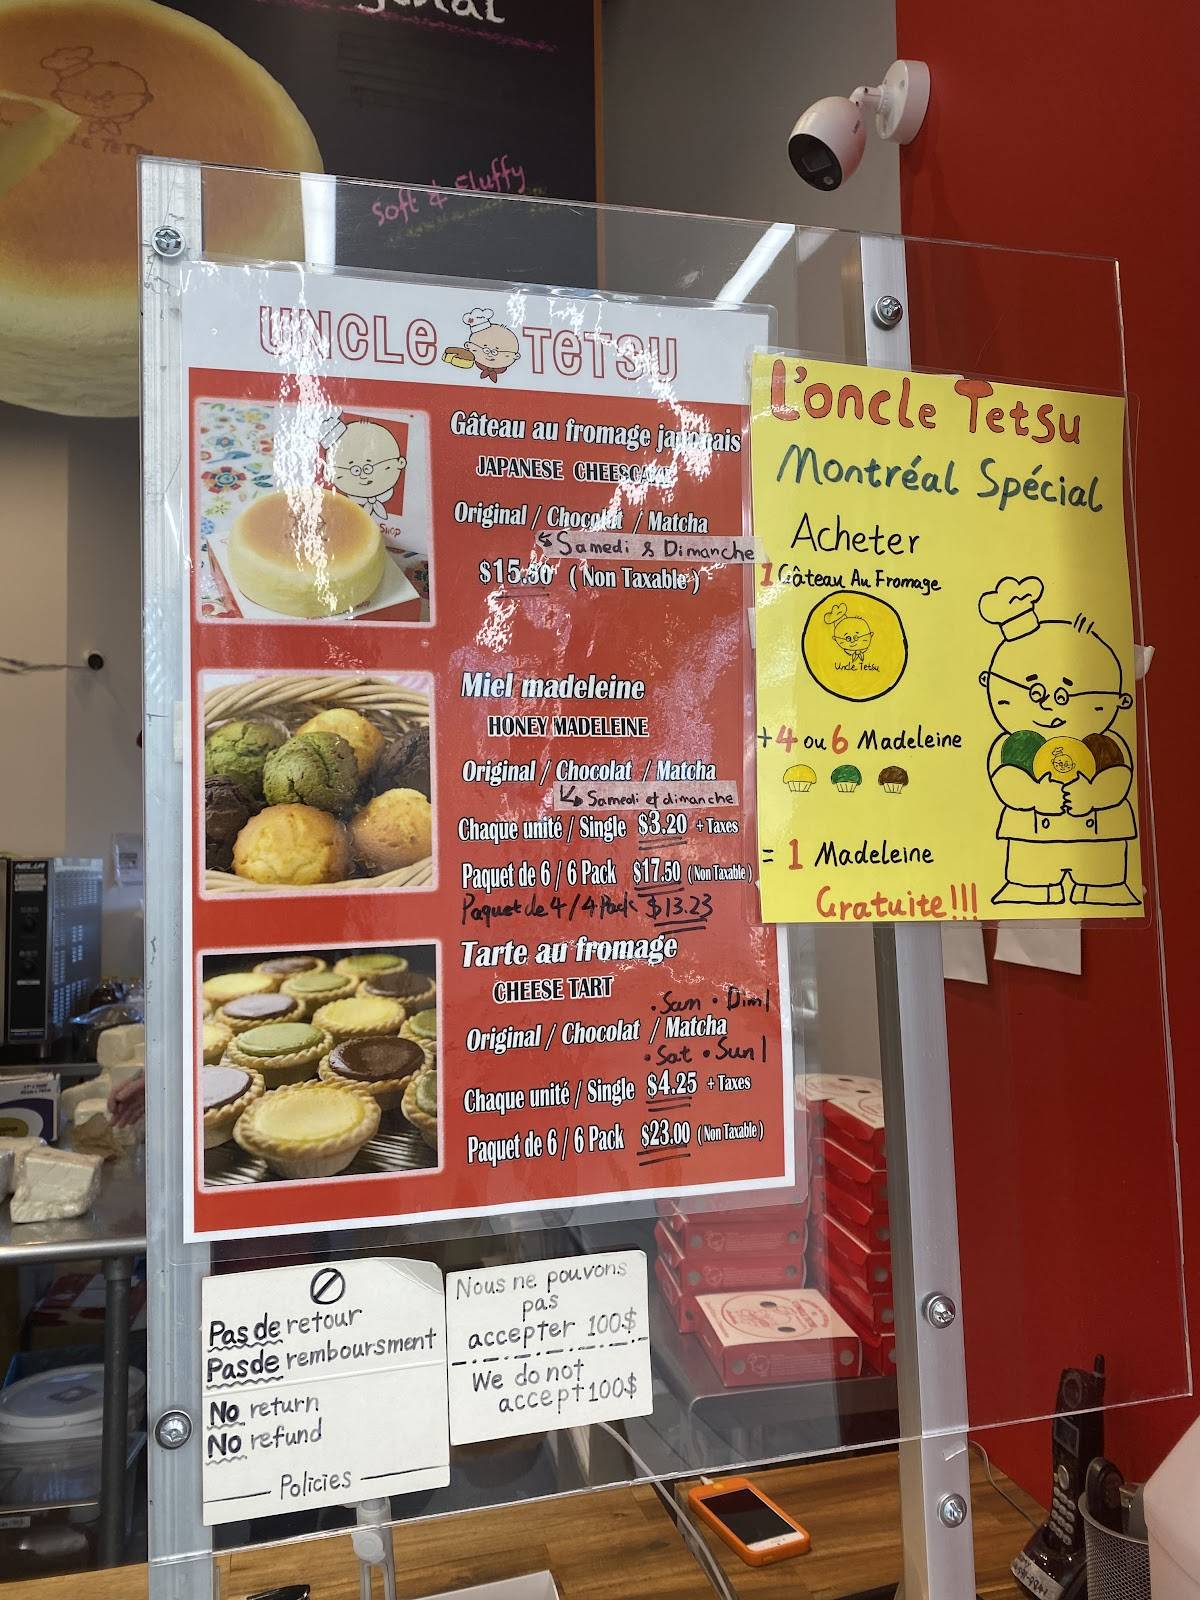 Soft & Fluffy
UNCLE TETSU
Gâteau au fromage japonais
JAPANESE CHEESCAKE
Original / Chocolat / Matcha
Samedi & Dimanche
$15.50 (Non Taxable)
Miel madeleine
HONEY MADELEINE
Original / Chocolat / Matcha
Samedi et dimanche
Chaque unité / Single $3.20 + Taxes
Paquet de 6 / 6 Pack $17.50 (Non Taxable)
Paquet de 4 / 4 Pack $13.23
Tarte au fromage
CHEESE TART
• Sam • Dim
Original / Chocolat / Matcha
• Sat • Sun
Chaque unité / Single $4.25 + Taxes
Paquet de 6 / 6 Pack $23.00 (Non Taxable)
L'oncle Tetsu
Montréal Spécial
Acheter
1 Gâteau Au Fromage
Uncle Tetsu
+ 4 ou 6 Madeleine
= 1 Madeleine
Gratuite!!!
Pas de retour
Pas de remboursment
No return
No refund
Policies
Nous ne pouvons
pas
accepter 100$
We do not
accept 100$